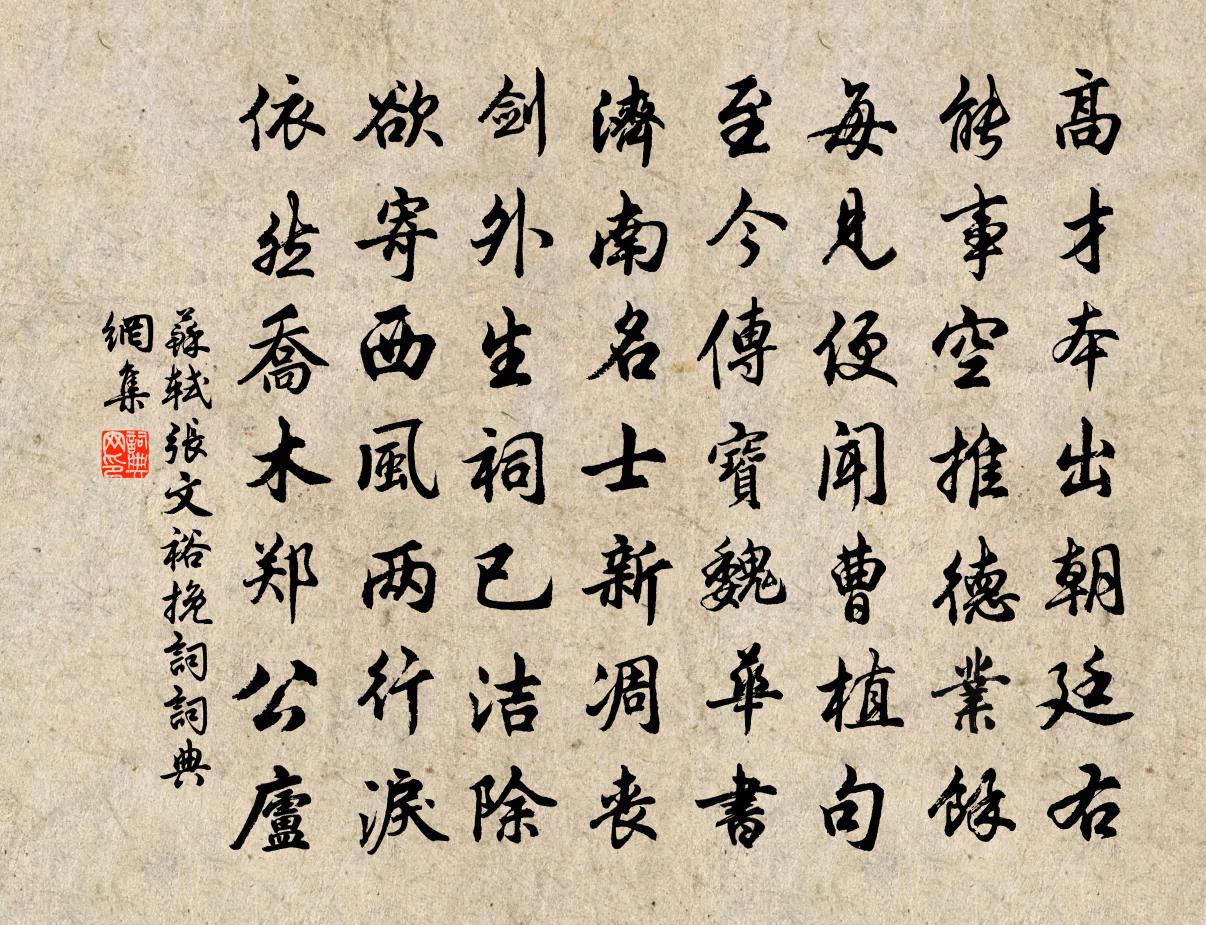 高才本出朝廷右
能事空推德業餘
每見便聞曹植句
至今傳寶魏華書
濟南名士新凋丧
剑外生祠已洁除
欲寄西風两行淚
依然喬木郑公廬
蘇軾張文裕挽詞詞典
網集
詞典
网印